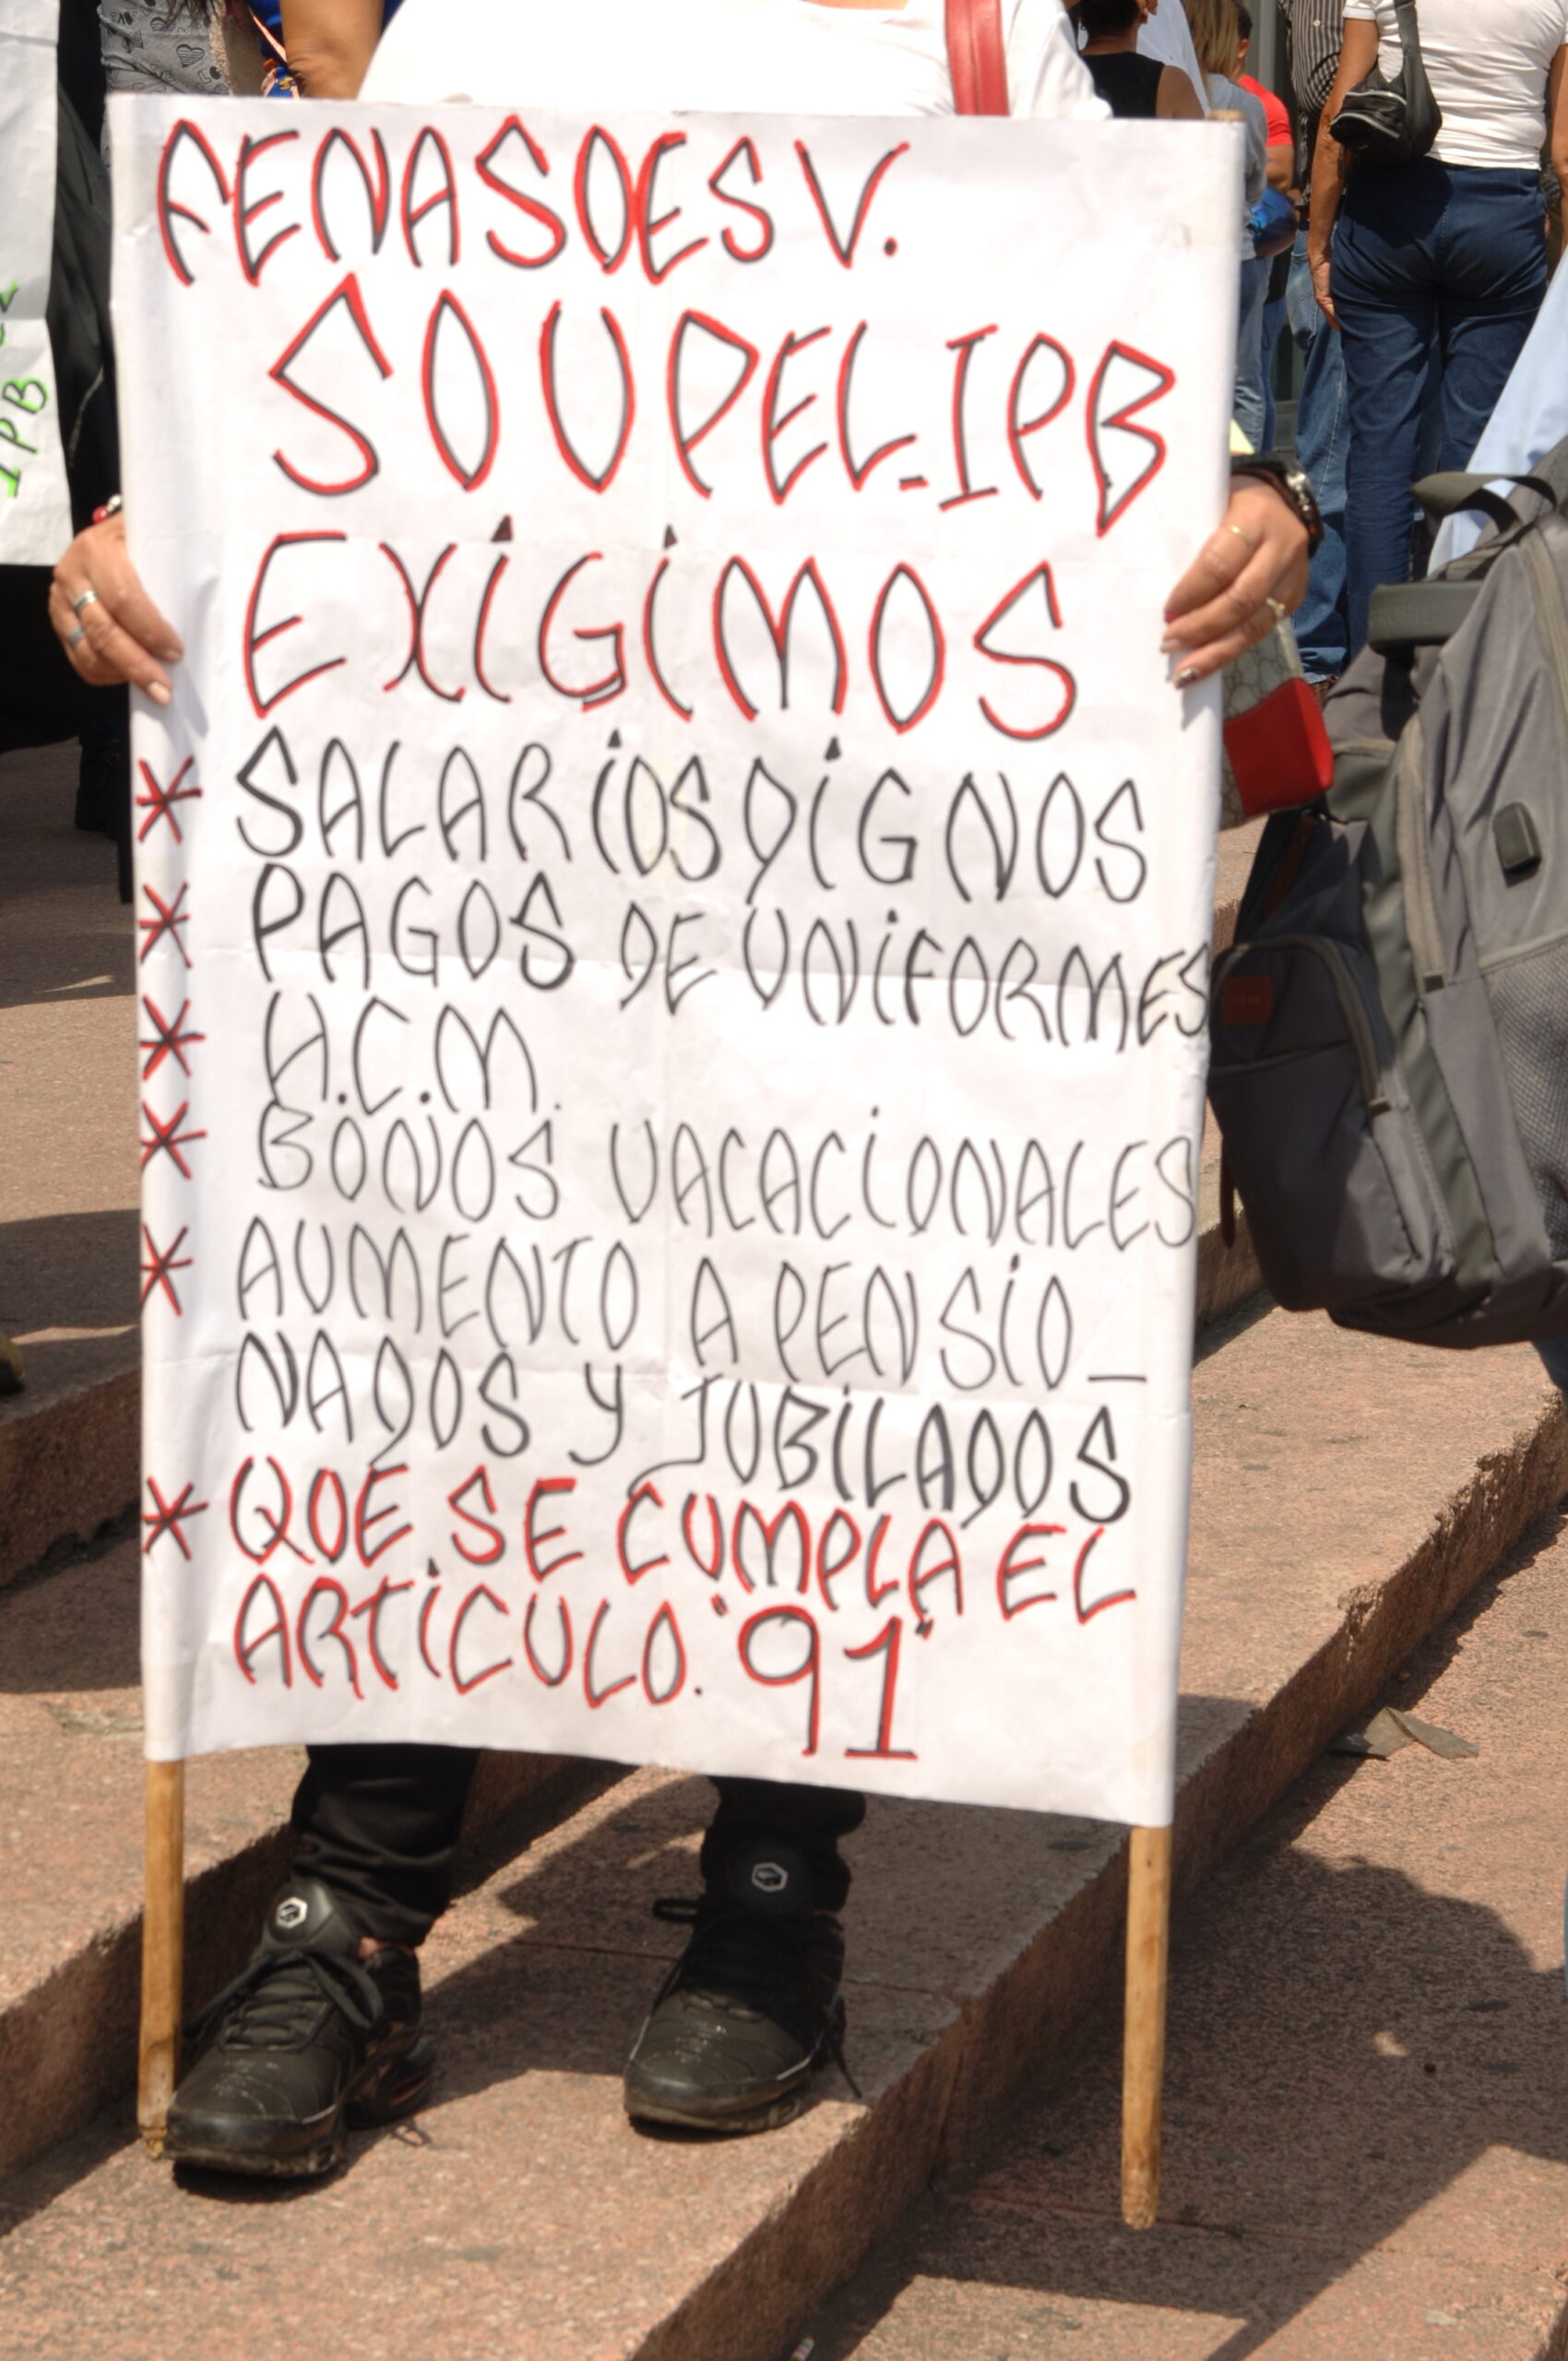 FENASOESV.
SOUPEL-IPB
EXiGiMOS
* SALARiOS DiGNOS
* PAGOS DE UNiFORMES
* H.C.M.
* BONOS VACACiONALES
* AUMENTO A PENSiO_
NADOS Y JUBiLADOS
* QUE SE CUMPLA EL
ARTiCULO. "91"
IPB